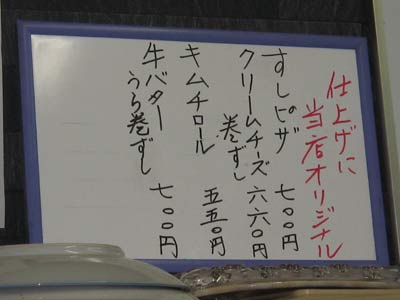 仕上げに
当店オリジナル
すしピザ 七〇〇円
クリームチーズ
巻ずし 六六〇円
キムチロール 五五〇円
牛バター
うら巻ずし 七〇〇円